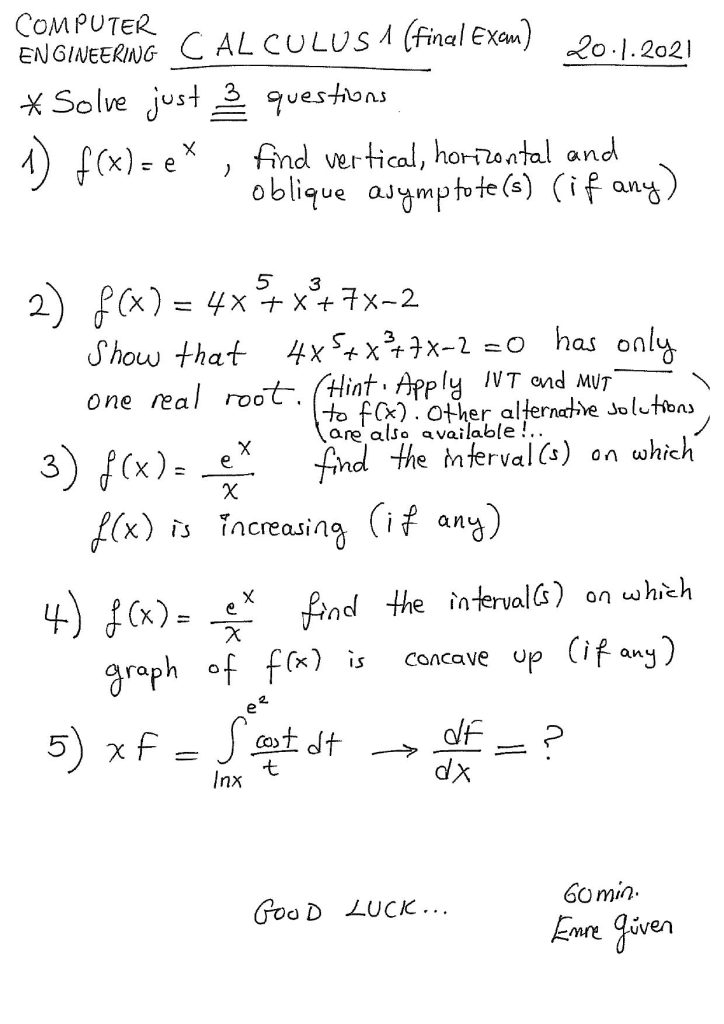 COMPUTER
ENGINEERING CALCULUS 1 (final Exam) 20.1.2021
* Solve just 3 questions
1) f(x) = e^x , find vertical, horizontal and
oblique asymptote(s) (if any)
2) f(x) = 4x^5 + x^3 + 7x - 2
Show that 4x^5 + x^3 + 7x - 2 = 0 has only
one real root. (Hint. Apply IVT and MVT
to f(x). Other alternative solutions
are also available!..)
3) f(x) = e^x/x find the interval(s) on which
f(x) is increasing (if any)
4) f(x) = e^x/x find the interval(s) on which
graph of f(x) is concave up (if any)
5) xf = ∫_{lnx}^{e^2} cost/t dt → df/dx = ?
GOOD LUCK...
60 min.
Emre Güven